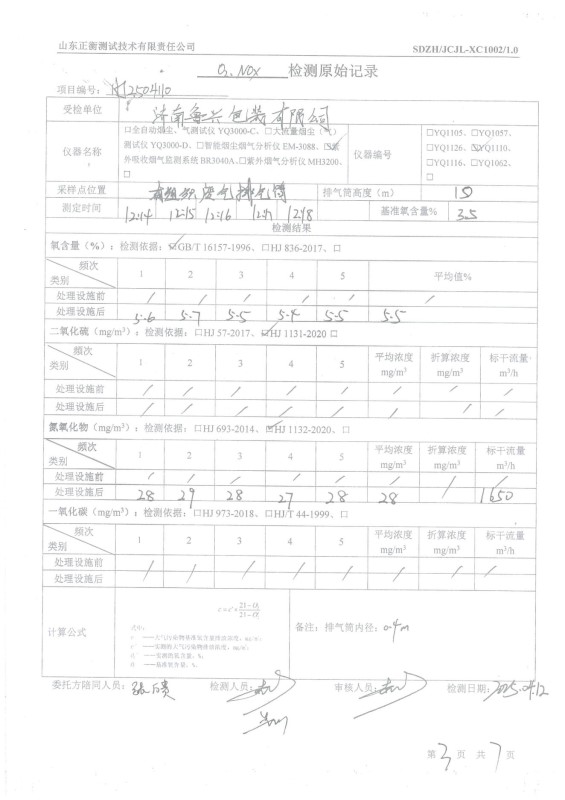 山东正衡测试技术有限责任公司 SDZH/JCJL-XC1002/1.0
O₂、NOx 检测原始记录
项目编号：2504110
受检单位 济南鲁兴包装有限公司
仪器名称 □全自动烟尘、气测试仪 YQ3000-C、□大流量烟尘（气）测试仪 YQ3000-D、□智能烟尘烟气分析仪 EM-3088、☑紫外吸收烟气监测系统 BR3040A、□紫外烟气分析仪 MH3200、□
仪器编号 □YQ1105、□YQ1057、□YQ1126、☑YQ1110、□YQ1116、□YQ1062、□
采样点位置 有组织废气排气筒 排气筒高度（m） 15
测定时间 12:14 12:15 12:16 12:17 12:18 基准氧含量% 3.5
检测结果
氧含量（%）：检测依据：☑GB/T 16157-1996、□HJ 836-2017、□
频次 类别 1 2 3 4 5 平均值%
处理设施前 / / / / / /
处理设施后 5.6 5.7 5.5 5.4 5.5 5.5
二氧化硫（mg/m³）：检测依据：□HJ 57-2017、☑HJ 1131-2020 □
频次 类别 1 2 3 4 5 平均浓度 mg/m³ 折算浓度 mg/m³ 标干流量 m³/h
处理设施前 / / / / / / / /
处理设施后 / / / / / / / /
氮氧化物（mg/m³）：检测依据：□HJ 693-2014、☑HJ 1132-2020、□
频次 类别 1 2 3 4 5 平均浓度 mg/m³ 折算浓度 mg/m³ 标干流量 m³/h
处理设施前 / / / / / / / /
处理设施后 28 29 28 27 28 28 / 1650
一氧化碳（mg/m³）：检测依据：□HJ 973-2018、□HJ/T 44-1999、□
频次 类别 1 2 3 4 5 平均浓度 mg/m³ 折算浓度 mg/m³ 标干流量 m³/h
处理设施前 / / / / / / / /
处理设施后 / / / / / / / /
计算公式
式中：
备注：排气筒内径：0.4m
委托方陪同人员： 检测人员： 审核人员： 检测日期：2025.04.12
第 3 页 共 7 页